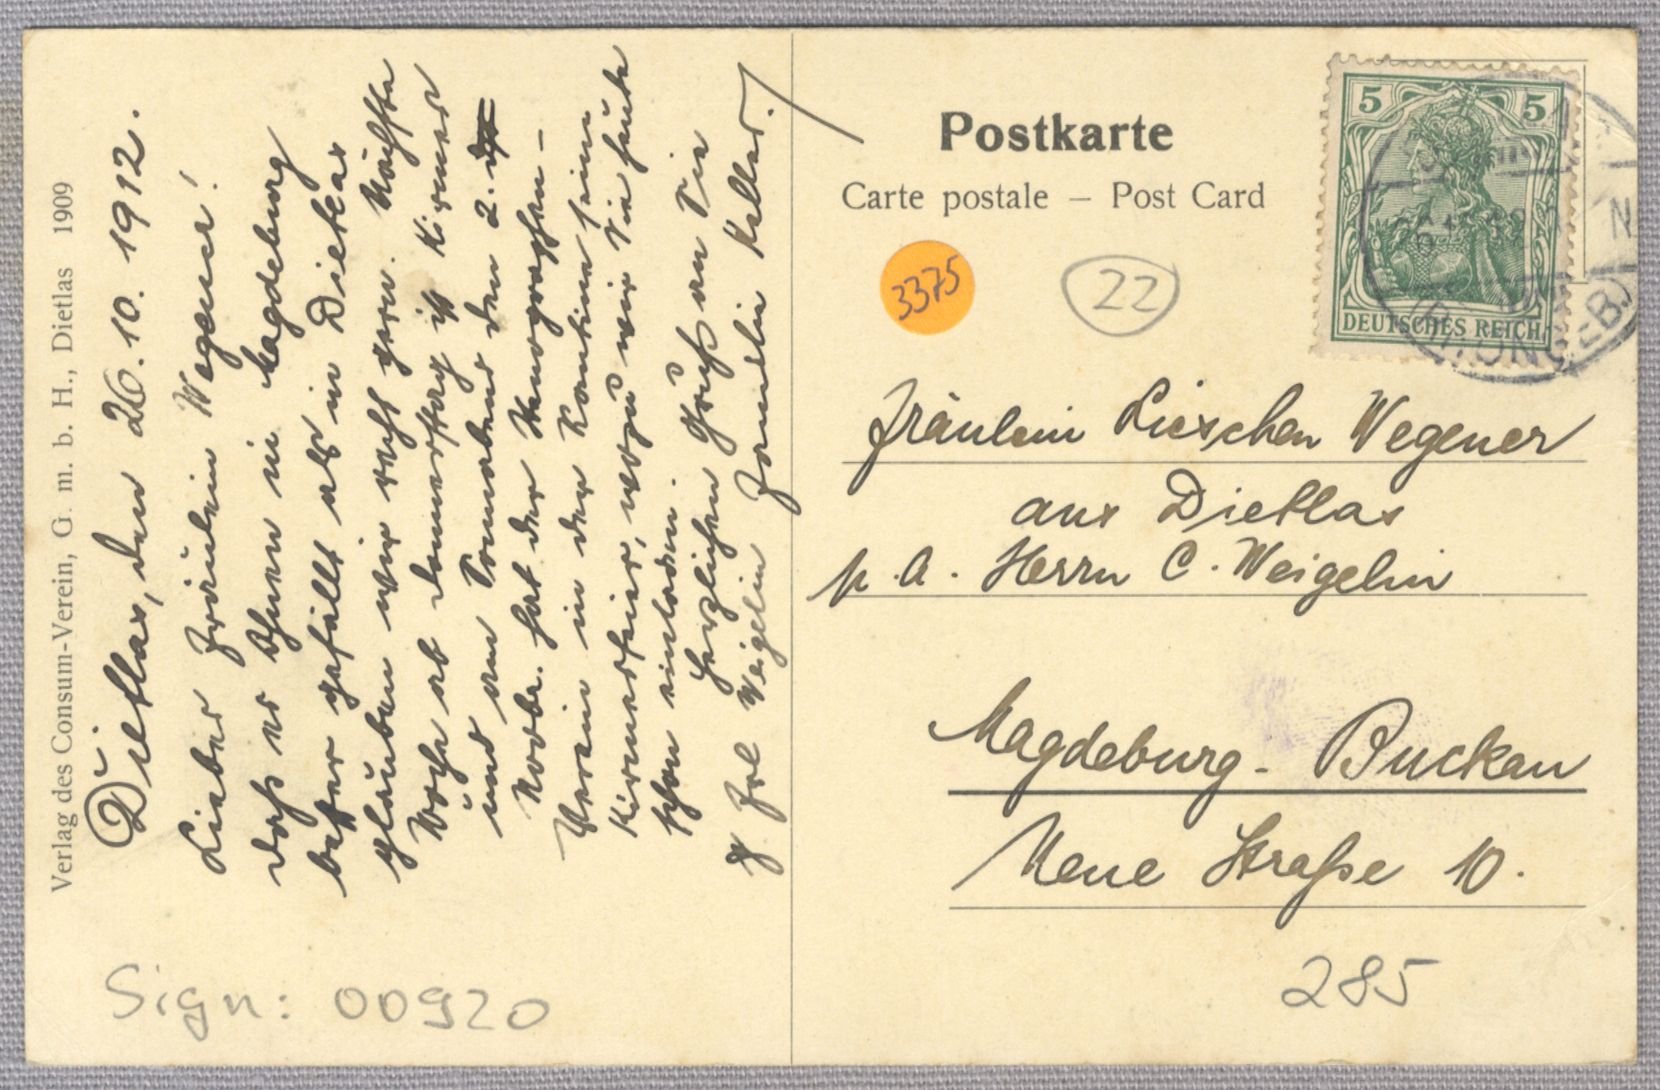 Verlag des Consum-Verein, G. m. b. H., Dietlas 1909
Dietlas, den 26. 10. 1912.
Liebes Fräulein Wegener!
daß es Ihnen in Magdeburg
besser gefällt als in Dietlas
glauben wir recht gern. Nächste
Woche ab Donnerstag ist Kirmes
und am Sonnabend den 2.
Novbr. hat der Stenographen-
Verein in der Kantine seine
Kirmesfeier, wozu wir Sie heute
schon einladen.
Herzlichen Gruß an Sie
& Frl Weigelin Familie Keller.
Postkarte
Carte postale – Post Card
3375
22
5 5
DEUTSCHES REICH
Fräulein Lieschen Wegener
aus Dietlas
p. A. Herrn C. Weigelin
Magdeburg-Buckau
Neue Straße 10.
285
Sign: 00920